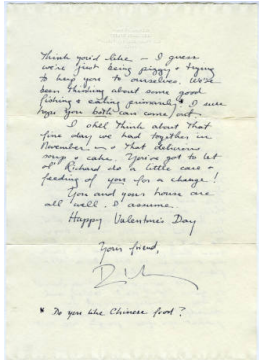 Think you'd like — I guess
we're just being piggy & trying
to keep you to ourselves. We've
been thinking about some good
fishing & eating primarily & I sure
hope you both can come out.
I still think about that
fine day we had together in
November and that delicious
soup & cake. You've got to let
ol Richard do a little care &
feeding of you for a change!
You and your house are
all well, I assume.
Happy Valentine's Day
Your friend,
* Do you like Chinese food?